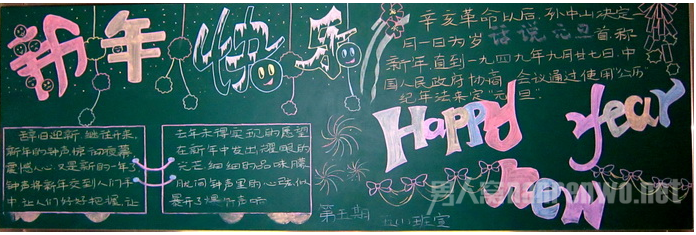 新年快乐
辛亥革命以后，孙中山决定一
月一日为岁 话说元旦 首，称
新年，直到一九四九年九月廿七日，中
国人民政府协商会议通过使用“公历
纪年法来定“元旦”
Happy
year
new
辞旧迎新 继往开来
新年的钟声
震撼人心 又是新的一年了
钟声将新年交到人们手
中让人们好好把握 让
去年未得实现的愿望
在新年中发出耀眼的
光芒 细细的品味
钟声里的心跳
第五期